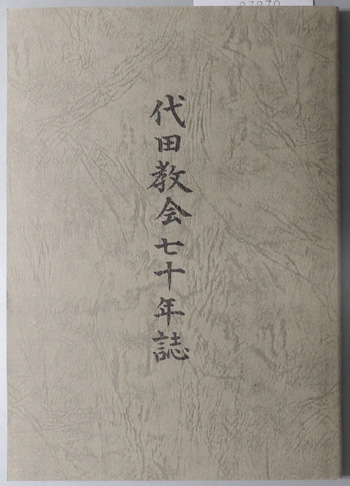 代田教会七十年誌